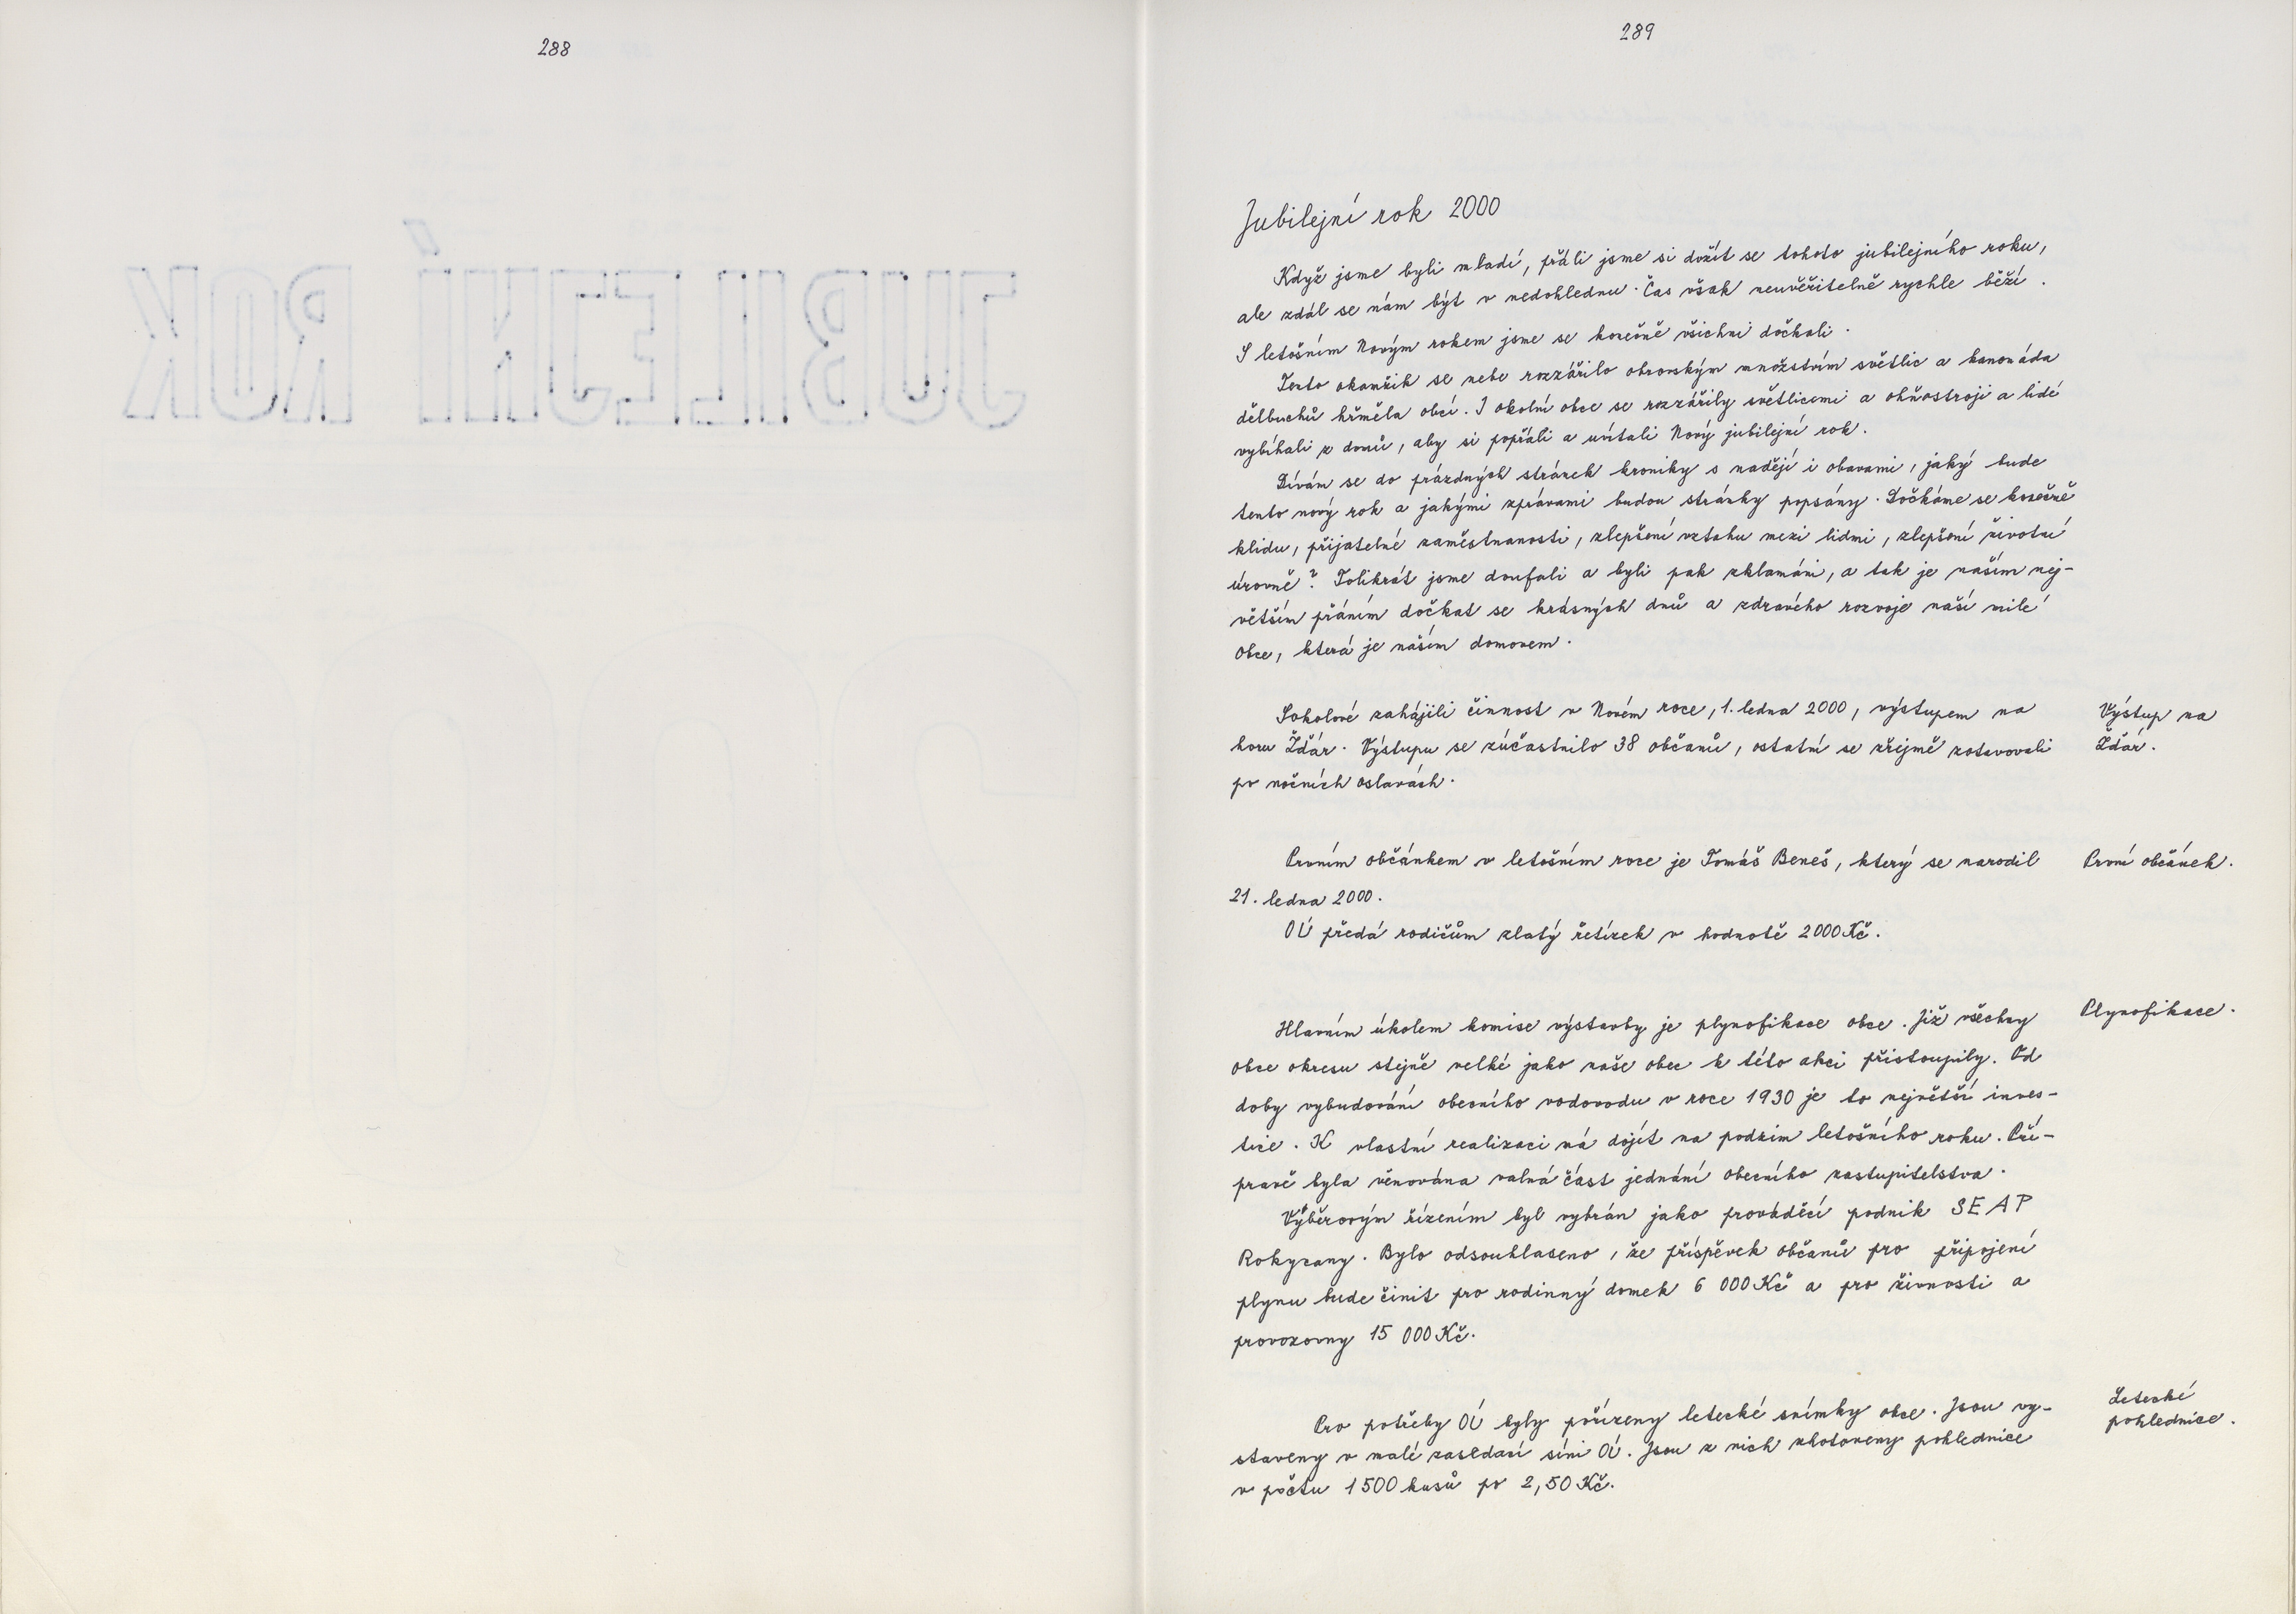 288
289
Jubilejní rok 2000
Když jsme byli mladí, přáli jsme si dožít se tohoto jubilejního roku,
ale zdál se nám být v nedohlednu. Čas však neuvěřitelně rychle běží.
S letošním Novým rokem jsme se konečně všichni dočkali.
Tento okamžik se nebe rozzářilo obrovským množstvím světlic a kanonáda
dělbuchů hřměla obcí. I okolní obce se rozzářily světlicemi a ohňostroji a lidé
vybíhali z domů, aby si popřáli a uvítali Nový jubilejní rok.
Dívám se do prázdných stránek kroniky s nadějí i obavami, jaký bude
tento nový rok a jakými zprávami budou stránky popsány. Dočkáme se konečně
klidu, přijatelné zaměstnanosti, zlepšení vztahu mezi lidmi, zlepšení životní
úrovně? Tolikrát jsme doufali a byli pak zklamáni, a tak je naším nej-
větším přáním dočkat se krásných dnů a zdravého rozvoje naší milé
obce, která je naším domovem.
Sokolové zahájili činnost v Novém roce, 1. ledna 2000, výstupem na
horu Žďár. Výstupu se zúčastnilo 38 občanů, ostatní se zřejmě zotavovali
po nočních oslavách.
Výstup na
Žďár.
Prvním občánkem v letošním roce je Tomáš Beneš, který se narodil
21. ledna 2000.
OÚ předá rodičům zlatý řetízek v hodnotě 2000 Kč.
První občánek.
Hlavním úkolem komise výstavby je plynofikace obce. Již všechny
obce okresu stejně velké jako naše obec k této akci přistoupily. Od
doby vybudování obecního vodovodu v roce 1930 je to největší inves-
tice. K vlastní realizaci má dojít na podzim letošního roku. Pří-
pravě byla věnována valná část jednání obecního zastupitelstva.
Výběrovým řízením byl vybrán jako prováděcí podnik SEAP
Rokycany. Bylo odsouhlaseno, že příspěvek občanů pro připojení
plynu bude činit pro rodinný domek 6 000 Kč a pro živnosti a
provozovny 15 000 Kč.
Plynofikace.
Pro potřeby OÚ byly pořízeny letecké snímky obce. Jsou vy-
staveny v malé zasedací síni OÚ. Jsou z nich zhotoveny pohlednice
v počtu 1500 kusů po 2,50 Kč.
Letecké
pohlednice.